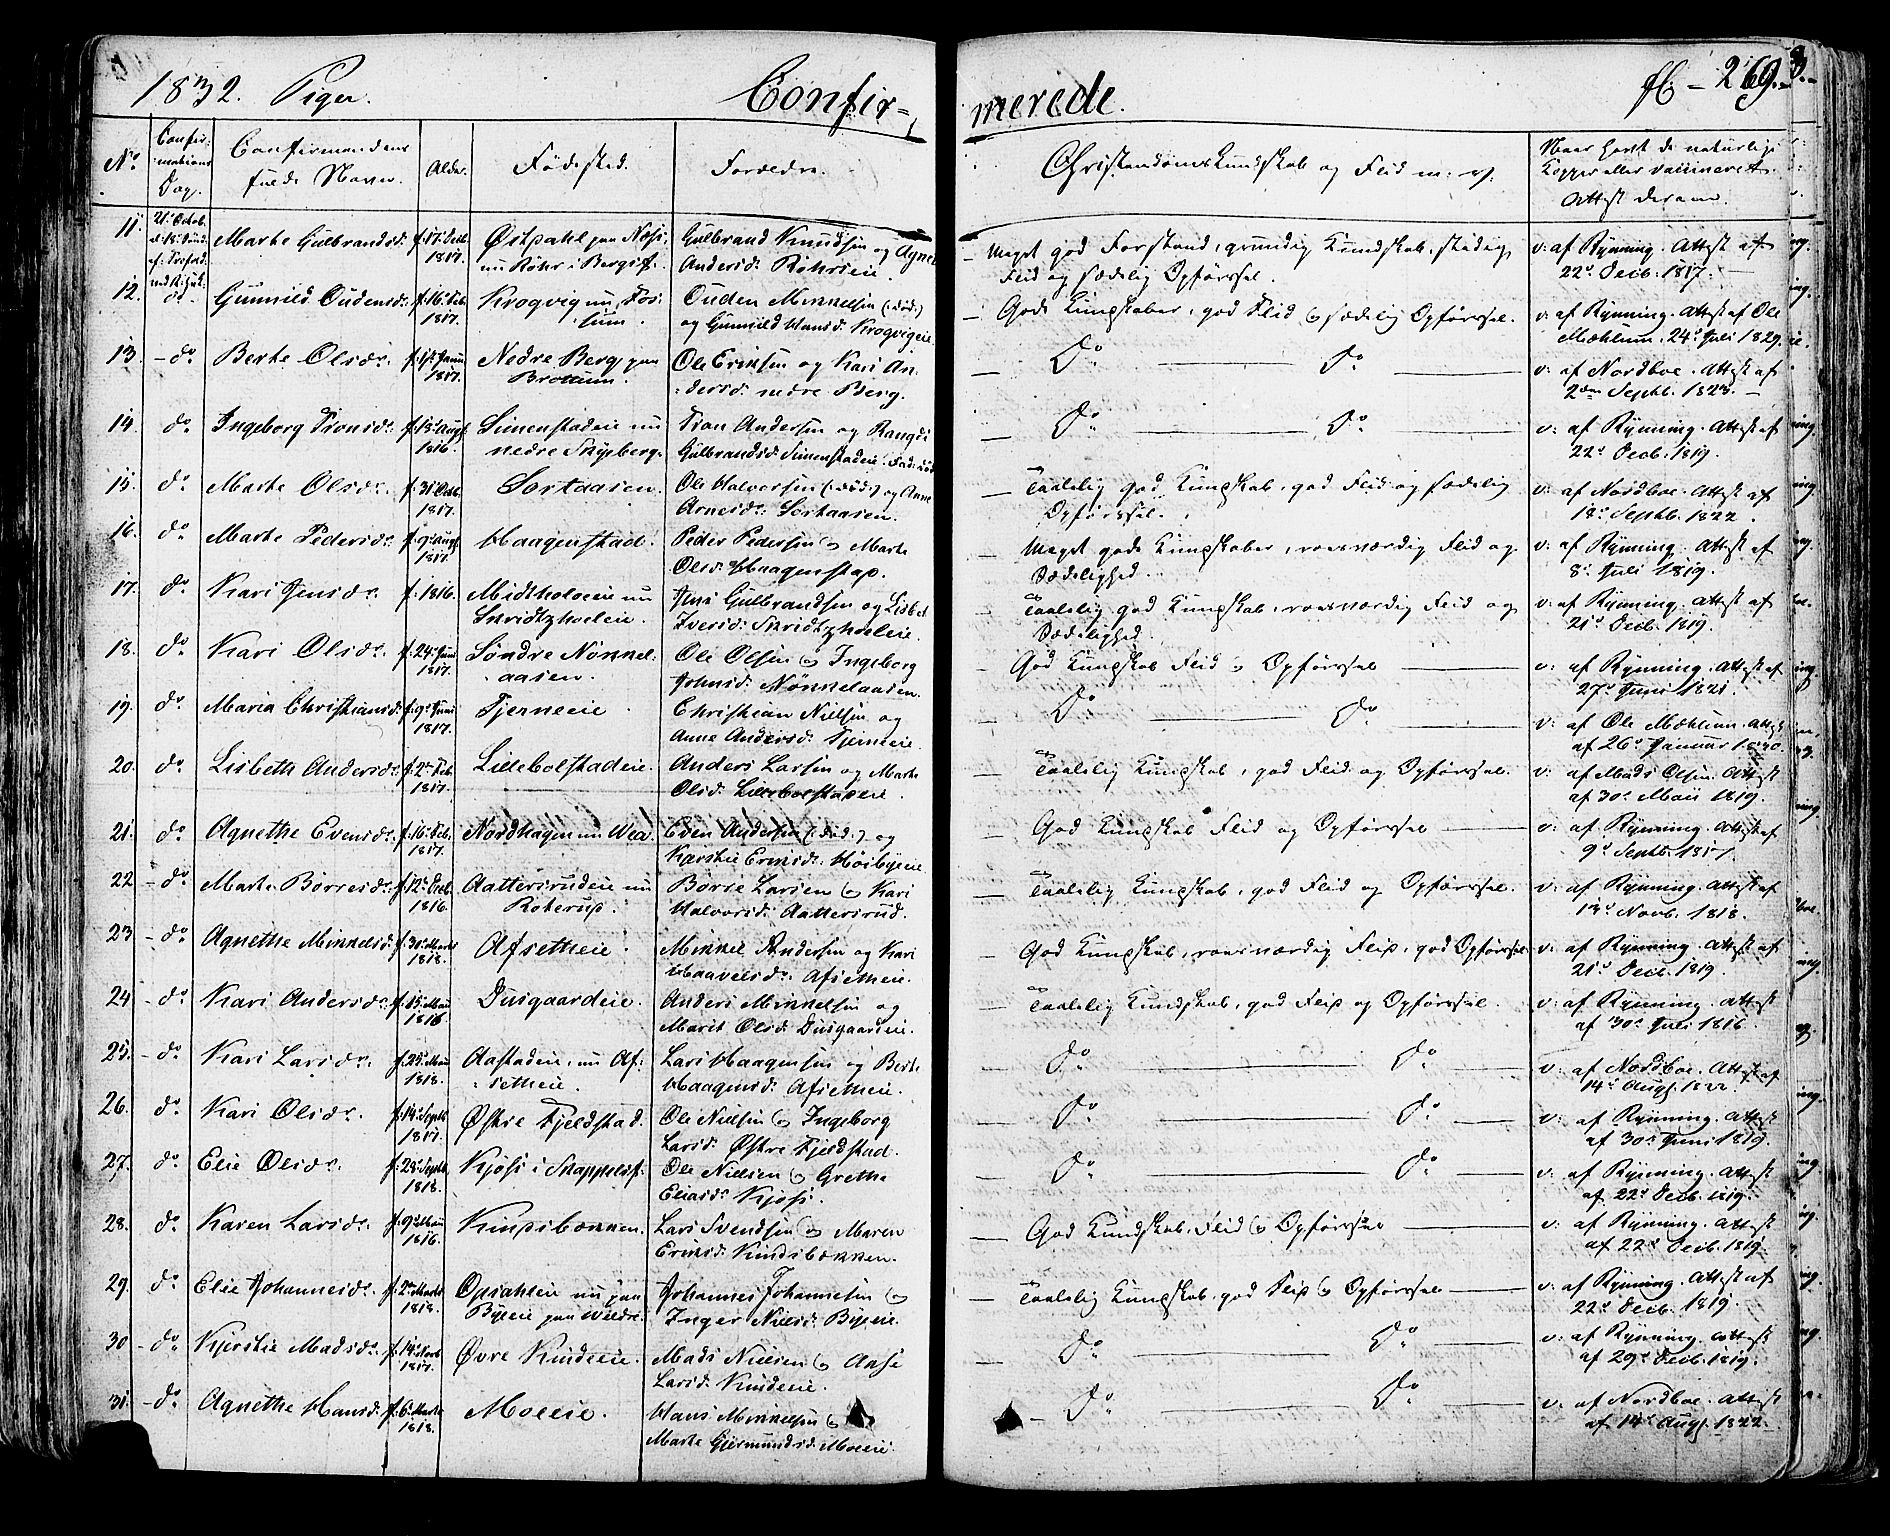 1832. Piger. Confir-
merede. fl - 269.
No
Confir-
mations
Dag.
Confirmandens
fulde Navn.
Alder.
Fødested.
Forældre.
Christendoms Kundskab og Flid m: v:
Naar havt de naturlige
Kopper eller vaccineret.
Attest derom.
11. 21de Octob. Marthe Gulbrandsd: f. 17. Decb. 1817. Østdahl paa Næss,
nu Røhr i Bergsf.
Gulbrand Knudsen og Agnethe
Andersd: Røhrseie.
Meget god Forstand, grundig Kundskab, stadig
Flid og sædelig Opførsel.
v: af Rynning. Attest af
22d Decb. 1817.
12. do Gunnild Oudensd: f. 16. Feb. 1817. Krogvig nu Fos-
sum.
Ouden Mikkelsen (: død:)
og Gunnild Hansd: Krogvigeie
Gode Kundskaber, god Flid & sædelig Opførsel.
v: af Rynning. Attest af Ole
Mæhlum. 24d Juli 1829.
13. - do Berthe Olsdr. 1817. Nedre Berg paa
Brottum.
Ole Eriksen og Kari An-
dersd: nedre Berg.
Do Do
v: af Nordboe. Attest af
2den Septb. 1823.
14. do Ingeborg Tronsdr f. 13. Augs. 1816. Simenstadeie nu
nedre Skyberg.
Tron Andersen og Rangdi
Gulbrandsd: Simenstadeie. Fad: død
Do Do
v: af Rynning. Attest af
22d Decb. 1819.
15. do Marthe Olsdr. f. 31 Octb. 1817. Sortaasen.
Ole Halvorsen (: død:) og Anne
Arnesdr: Sortaasen.
Taalelig god Kundskab, god Flid og sædelig
Opførsel.
v: af Nordboe. Attest af
18d Septb. 1822.
16. do Marthe Pedersdr. f. 9d Augs 1817. Haagenstad.
Peder Pedersen & Marthe
Olsd: Haagenstad.
Meget gode Kundskaber, roesværdig Flid og
Sædelighed.
v: af Rynning. Attest af
8d Juli 1819.
17. do Kari Jensdr. f. 1816. Midtholoeie nu
Skridtzhoeleie.
Jens Gulbrandsen og Lisbet
Iversd: Skridtzhoeleie.
Taalelig god Kundskab, roesværdig Flid og
Sædelighed
v: af Rynning. Attest af
21d Decb. 1819.
18. do Kari Olsdr. f. 24. 1817. Søndre Nønnel-
aasen.
Ole Olsen & Ingeborg
Johnsd: Nønnelaasen.
God Kundskab Flid & Opførsel
v: af Rynning. Attest af
27d Juni 1821.
19. do Maria Christiansd: f. 9d Juni 1817. Tjerneeie
Christian Nielsen og
Anne Andersd: Tjerneeie.
Do Do
v: af Ole Mæhlum. Attest
af 26d Januar 1830.
20. do Lisbeth Andersdr f. 2. Feb. 1817. Lillebolstadeie.
Anders Larsen og Marthe
Olsd: Lillebolstadeie.
Taalelig Kundskab, god Flid og Opførsel.
v: af Mads Olsen. Attest
af 30d Maii 1819.
21. do Agnethe Evensdr. f. 16. Feb. 1817. Nordhagen nu
Even Andersen (: død:) og
Karstie Eriksd: Høibyeie
God Kundskab Flid og Opførsel
v: af Rynning. Attest af
9d Septb. 1817.
22 - do Marthe Børresdr. f. 12. Decb. 1816. Aattersrudeie nu
Roterud.
Børre Larsen & Kari
Halvorsd: Aattersrud.
Taalelig Kundskab, god Flid og Opførsel.
v: af Rynning. Attest af
13d Novb. 1818.
23 - do Agnethe Mikkelsd: f. 30. Marts 1818. Afsetheie
Mikkel Andersen og Kari
Haavelsdr. Afsetheie.
God Kundskab, roesværdig Flid, god Opførsel
v: af Rynning. Attest af
21d Decb. 1819.
24 - do Kari Andersdr. f. 15. Maii 1816. Dusgaardeie.
Anders Mikkelsen og
Marit Olsd: Dusgaardeie.
Taalelig Kundskab, god Flid og Opførsel.
v: af Rynning. Attest
af 30d Juli 1816.
25. - do Kari Larsdr. f. 25. Maii 1818. Aastadeie, nu Af-
setheie.
Lars Haagensen og Berthe
Haagensd: Afsetheie.
Do Do
v: af Nordboe. Attest af
14d Augs. 1822.
26. do Kari Olsdr. f. 14. Septb. 1817. Østre Fjeldstad.
Ole Nielsen & Ingeborg
Larsd: Østre Fjeldstad.
Do Do
v: af Rynning. Attest
af 30d Juni 1819.
27. do Elie Olsdr. f. 28. Septb. 1818. Kjøs i Snappelsf:
Ole Nielsen & Grethe
Eliasdr. Kjøs.
Do Do
v: af Rynning. Attest
af 22d Decb. 1819.
28. do Karen Larsdr. f. 9d Maii 1816. Kindsbækken.
Lars Svendsen & Maren
Eriksd: Kindsbækken.
God Kundskab, Flid & Opførsel
v: af Rynning. Attest
af 22d Decb. 1819.
29. do Elie Johannesdr. f. 2. Marts 1818. Opsahleie nu paa
Byeie paa
Johannes Johannesen &
Inger Nielsd: Byeie.
Taalelig Kundskab, god Flid & Opførsel
v: af Rynning. Attest af
22d Decb. 1819.
30 - do Kjerstie Madsdr. f. 14. Novb. 1817. Øvre Kindeeie.
Mads Nielsen & Aase
Larsd: Kindeeie.
Do Do
v: af Rynning. Attest
af 29d Decb. 1819.
31. - do Agnethe Hansd: f. 6. Marts 1818. Moeeie.
Hans Mikkelsen &
Marthe Gjermundsd: Moeeie.
Do Do
v: af Nordboe. Attest
af 14d Augs. 1822.